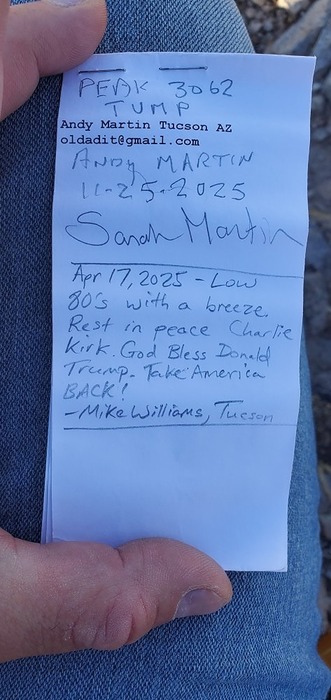 PEAK 3062
TUMP
Andy Martin Tucson AZ
oldadit@gmail.com
ANDY MARTIN
11-25-2025
Sarah Martin
Apr 17, 2025 - Low
80's with a breeze.
Rest in peace Charlie
Kirk. God Bless Donald
Trump. Take America
BACK!
-Mike Williams, Tucson